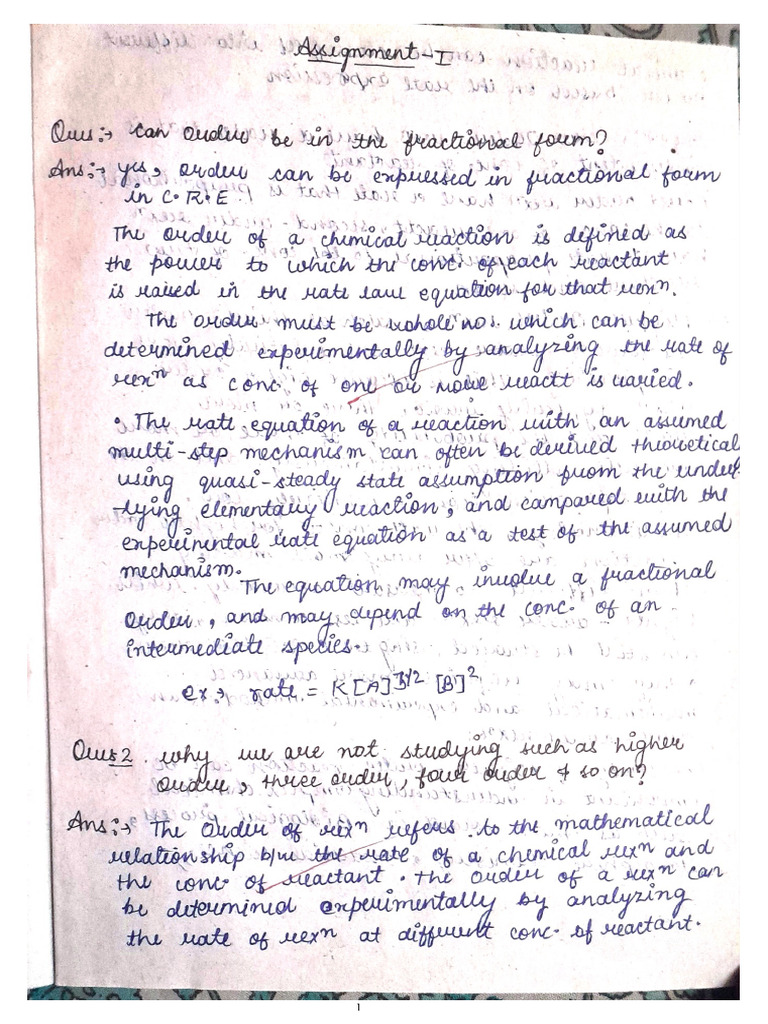 Assignment-I
Ques:→ can order be in the fractional form?
Ans:→ yes, order can be expressed in fractional form
in C.R.E
The order of a chemical reaction is defined as
the power to which the conc. of each reactant
is raised in the rate law equation for that rexⁿ.
The order must be whole no. which can be
determined experimentally by analyzing the rate of
rexⁿ as conc. of one or more reactt is varied.
• The rate equation of a reaction with an assumed
multi-step mechanism can often be derived theoretical
using quasi-steady state assumption from the under
-lying elementary reaction, and compared with the
experimental rate equation as a test of the assumed
mechanism.
The equation may involve a fractional
order, and may depend on the conc. of an
intermediate species.
ex:→ rate = K [A] [B]²
Ques 2. why we are not studying such as higher
order, three order, four order & so on?
Ans:→ The order of rexⁿ refers to the mathematical
relationship b/w the rate of a chemical rexⁿ and
the conc. of reactant. The order of a rexⁿ can
be determined experimentally by analyzing
the rate of rexⁿ at different conc. of reactant.
1